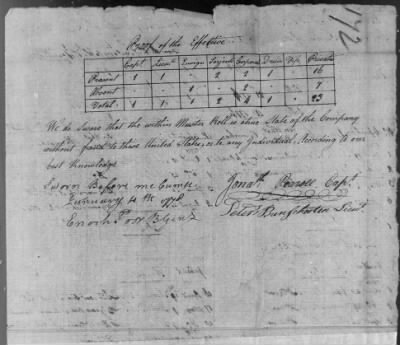 172
Proof of the Effective
Capt Lieut Ensign Serjents Corporals Drum Fife Privates
Present 1 1 · 2 2 1 · 16
Absent · · 1 · 2 · · 7
Total 1 1 1 2 4 1 · 23
We do Swear that the within Muster Roll is a true State of the Company
without fraud to these United States, or to any Individual, According to our
best Knowledge
Sworn Before me
February 4th 1778
Enoch Poor B Genl
Jonath Capt
Lieut